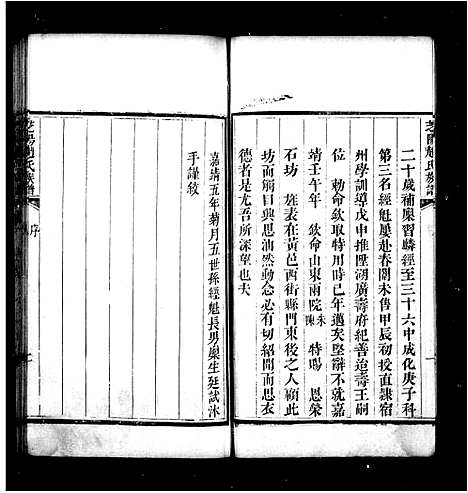 芝陽趙氏族譜
二十歲補廩習麟經至三十六中成化庚子科
第三名經魁屢赴春闈未售甲辰初授直隸宿
州學訓導戊申推陞湖廣壽府紀善造壽王嗣
位 勅命欽取特用時已年邁矣堅辭不就嘉
靖壬午年 欽命山東兩院朱陳 特賜 恩榮
石坊 旌表在黃邑西街縣門東後之人若此
坊而觸目興思油然動念必有紹聞而思衣
德者是尤吾所深望也夫
嘉靖五年菊月五世孫經魁長男廩生延試沐
手謹敘
芝陽趙氏族譜
序